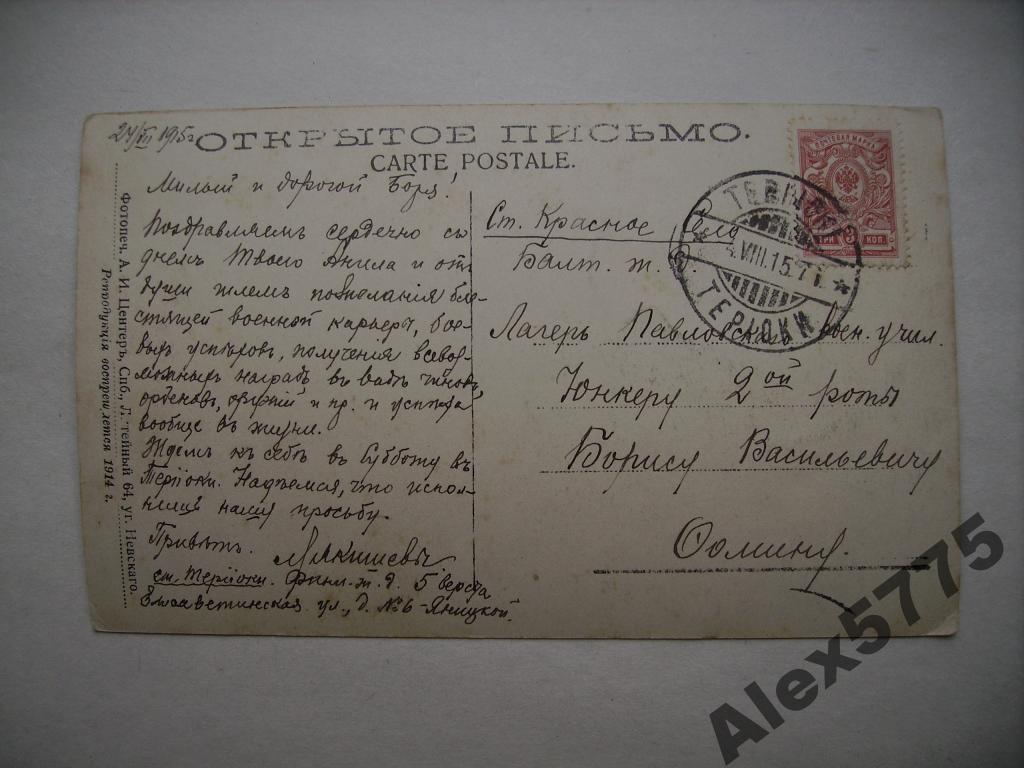 24/VII 1915 г
ОТКРЫТОЕ ПИСЬМО.
CARTE POSTALE.
Милый и дорогой Боря!
Поздравляемъ сердечно съ
днемъ Твоего Ангела и отъ
души шлемъ пожелания бле-
стящей военной карьеры, бое-
выхъ успѣховъ, получения всевоз-
можныхъ наградъ въ видѣ чиновъ,
орденовъ, оружий и пр. и успѣха
вообще въ жизни.
Ждемъ къ себѣ въ Субботу въ
Терiоки. Надѣемся, что испол-
нишь нашу просьбу.
Привѣтъ.
Мякишевы
ст. Терiоки. Финл. ж. д. 5 верста
Елизаветинская ул., д. №6 Яницкой.
Ст. Красное Село
Балт. ж.
Лагерь Павловскаго воен. учил.
Юнкеру 2ой роты
Борису Васильевичу
Ѳомину.
ПОЧТОВАЯ МАРКА
ТРИ 3 КОП.
VIII.15.7
ТЕРIОКИ
Фотопеч. А. И. Центеръ, Спб., Литейный 64, уг. Невскаго.
Репродукцiя воспрещается 1914 г.
Alex5775